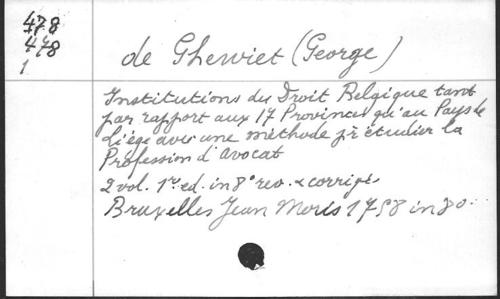 478
478
1
de Ghewiet (George)
Institutions du Droit Belgique tant
par rapport aux 17 Provinces qu'au Pays de
Liége avec une méthode pr étudier la
Profession d'avocat
2 vol. 1re ed. in 8° rev. & corrigé
Bruxelles Jean Moris 1758 in 8o.